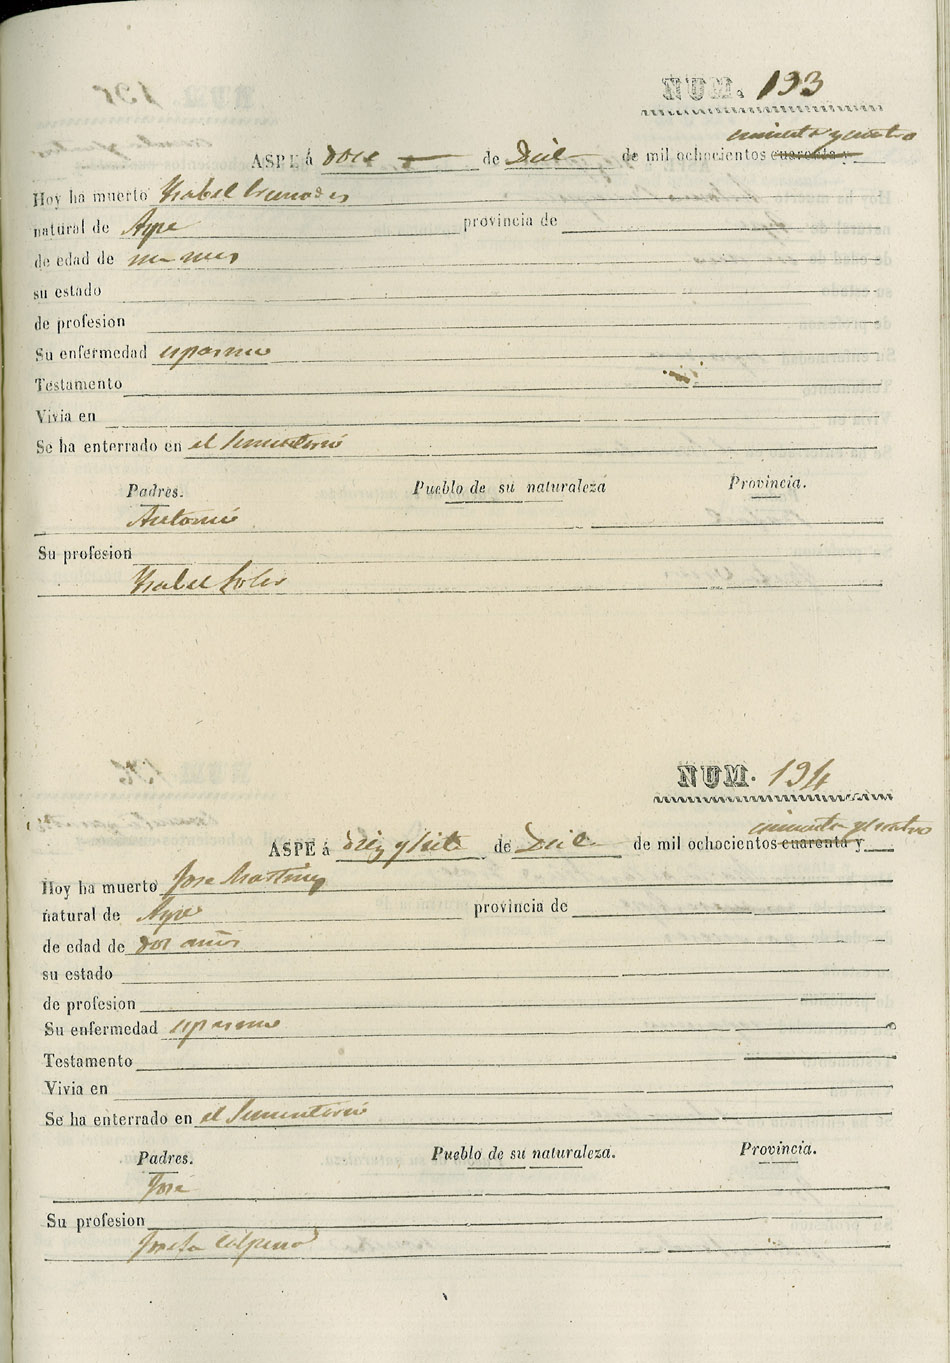 NUM. 193
cincuenta y cuatro
ASPE á doce de Dice de mil ochocientos cuarenta y
Hoy ha muerto Ysabel
natural de Aspe provincia de
de edad de un mes
su estado
de profesion
Su enfermedad espasmo
Testamento
Vivia en
Se ha enterrado en el Sementerio
Padres. Pueblo de su naturaleza Provincia.
Antonio
Su profesion
Ysabel Soler
NUM. 194
cincuenta y cuatro
ASPE á diez y siete de Dice de mil ochocientos cuarenta y
Hoy ha muerto Jose Martinez
natural de Aspe provincia de
de edad de dos años
su estado
de profesion
Su enfermedad espasmo
Testamento
Vivia en
Se ha enterrado en el Sementerio
Padres. Pueblo de su naturaleza. Provincia.
Jose
Su profesion
Josefa